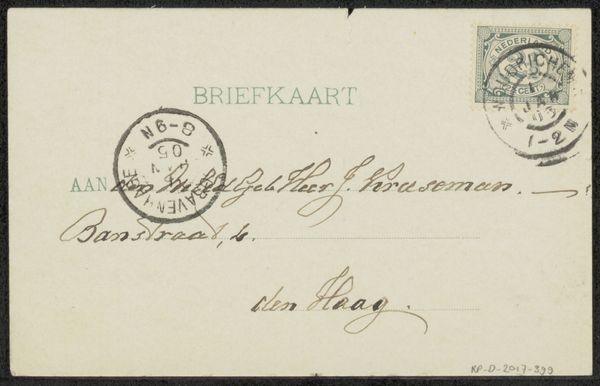 NEDERLAND
CENT
ZUIDRICHEM
JAN
1-2 N
BRIEFKAART
8-9N
JAN
05
'S GRAVENHAGE
AAN den Heer J. Kraeseman.
Banstraat, 6.
den Haag.
RP-D-2017-399